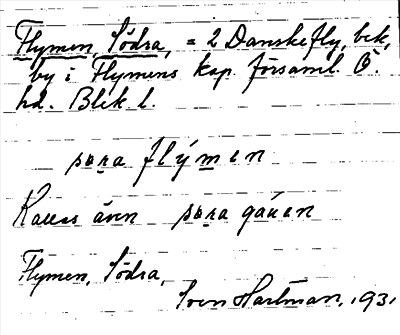 Flymen, Södra, = 2 Danskefly, bek,
by i Flymens kap. församl. Ö.
hd. Blek. l.
sɷra flýmen
Kallas även sɷra gáɷen
Flymen, Södra,
Sven Hartman, 1931